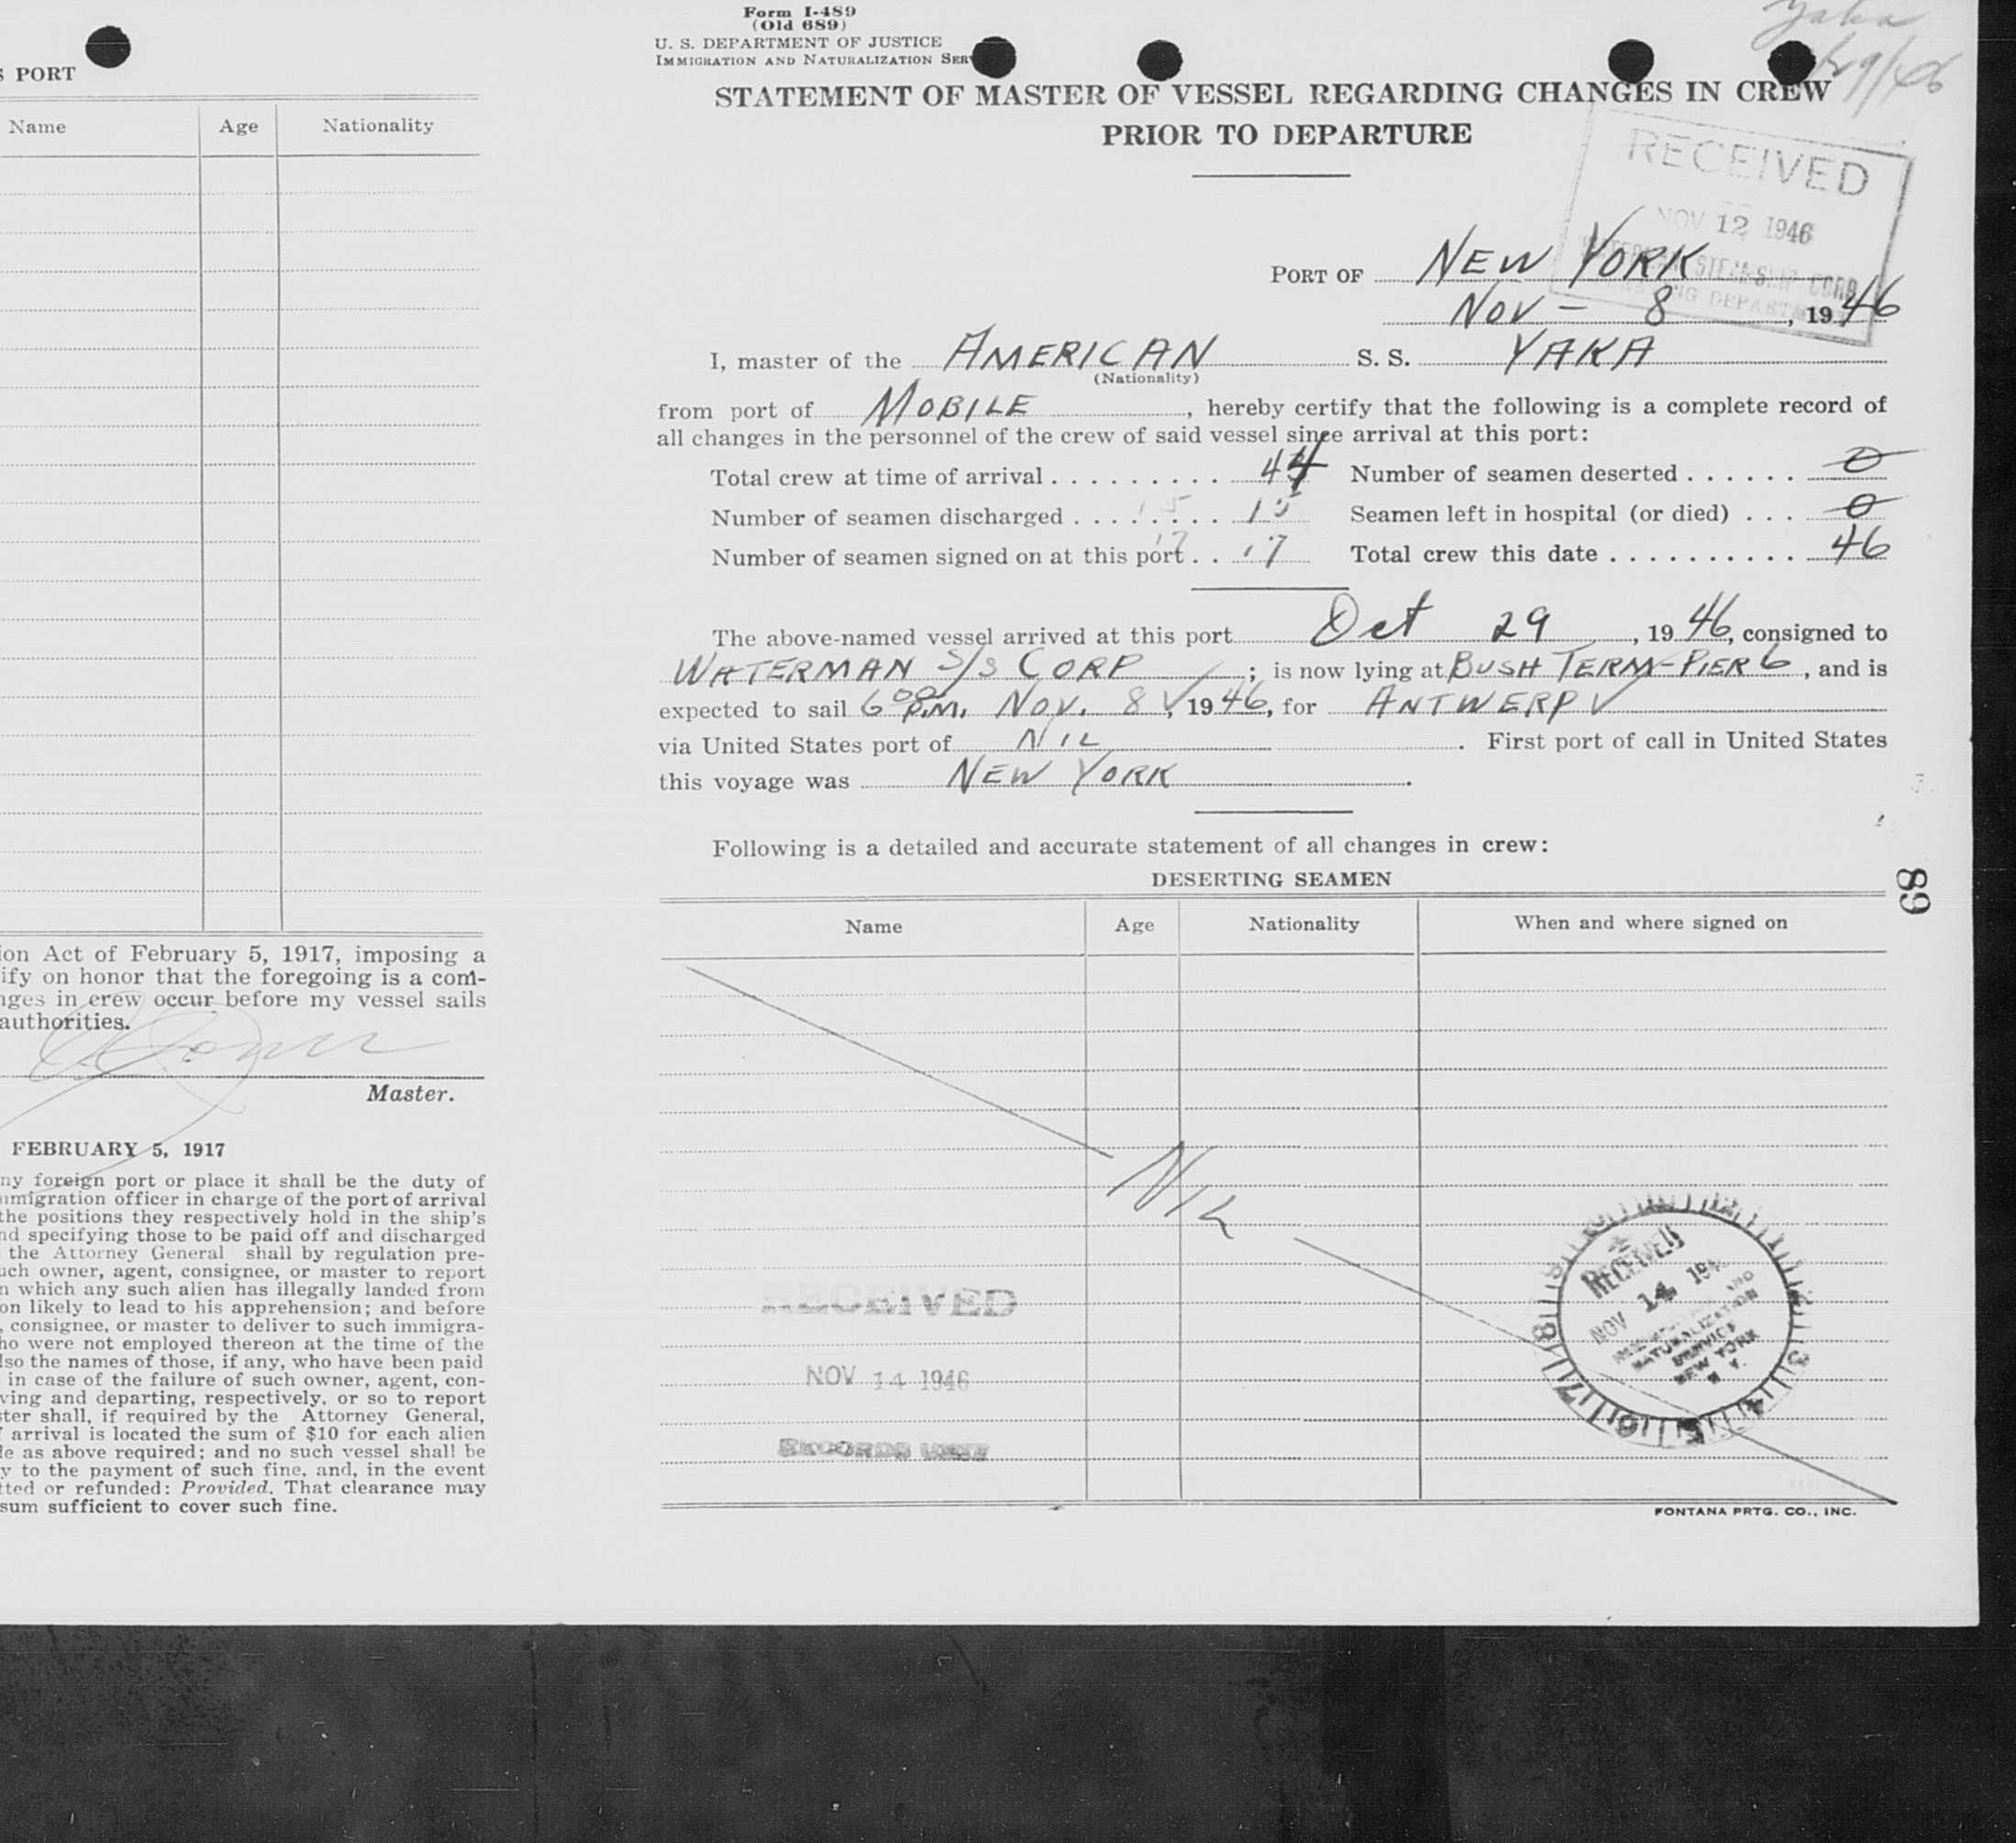 S PORT
Name Age Nationality
ion Act of February 5, 1917, imposing a
ify on honor that the foregoing is a com-
nges in crew occur before my vessel sails
authorities.
Master.
FEBRUARY 5, 1917
ny foreign port or place it shall be the duty of
mmigration officer in charge of the port of arrival
the positions they respectively hold in the ship's
nd specifying those to be paid off and discharged
the Attorney General shall by regulation pre-
uch owner, agent, consignee, or master to report
n which any such alien has illegally landed from
on likely to lead to his apprehension; and before
, consignee, or master to deliver to such immigra-
ho were not employed thereon at the time of the
lso the names of those, if any, who have been paid
in case of the failure of such owner, agent, con-
ving and departing, respectively, or so to report
ter shall, if required by the Attorney General,
f arrival is located the sum of $10 for each alien
le as above required; and no such vessel shall be
y to the payment of such fine, and, in the event
tted or refunded: Provided, That clearance may
sum sufficient to cover such fine.
Form I-489
(Old 689)
U. S. DEPARTMENT OF JUSTICE
IMMIGRATION AND NATURALIZATION SER
Yaka
29/46
STATEMENT OF MASTER OF VESSEL REGARDING CHANGES IN CREW
PRIOR TO DEPARTURE
RECEIVED
NOV 12 1946
STEAMSHIP CORP
DEPARTMENT
PORT OF NEW YORK
NOV - 8, 1946
I, master of the AMERICAN S. S. YAKA
(Nationality)
from port of MOBILE, hereby certify that the following is a complete record of
all changes in the personnel of the crew of said vessel since arrival at this port:
Total crew at time of arrival . . . . . . . . . 44 Number of seamen deserted . . . . . . 0
Number of seamen discharged . . . . . . . . 15 15 Seamen left in hospital (or died) . . . 0
Number of seamen signed on at this port . . 17 17 Total crew this date . . . . . . . . . . 46
The above-named vessel arrived at this port Oct 29, 1946, consigned to
WATERMAN S/S CORP; is now lying at BUSH TERM-PIER 6, and is
expected to sail 6 00 P.M. NOV. 8, 1946, for ANTWERP
via United States port of NIL. First port of call in United States
this voyage was NEW YORK.
Following is a detailed and accurate statement of all changes in crew:
DESERTING SEAMEN
Name Age Nationality When and where signed on
NIL
RECEIVED
NOV 14 1946
RECORDS UNIT
RECEIVED
NOV 14 194
AND
NATURALIZATION
SERVICE
NEW YORK
N. Y.
89
FONTANA PRTG. CO., INC.